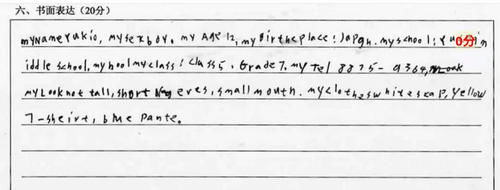 六、书面表达（20分）
myName Yukio, my sex boy. my Age 12, my Birthe place: Japan. my school: 0分 in
iddle school, my class: Class 5. Grade 7. my Tel 8875-9364, Look
my Look not tall, short eyes, small mouth. my clothes white scap, Yellow
T-sheirt, blue Pante.